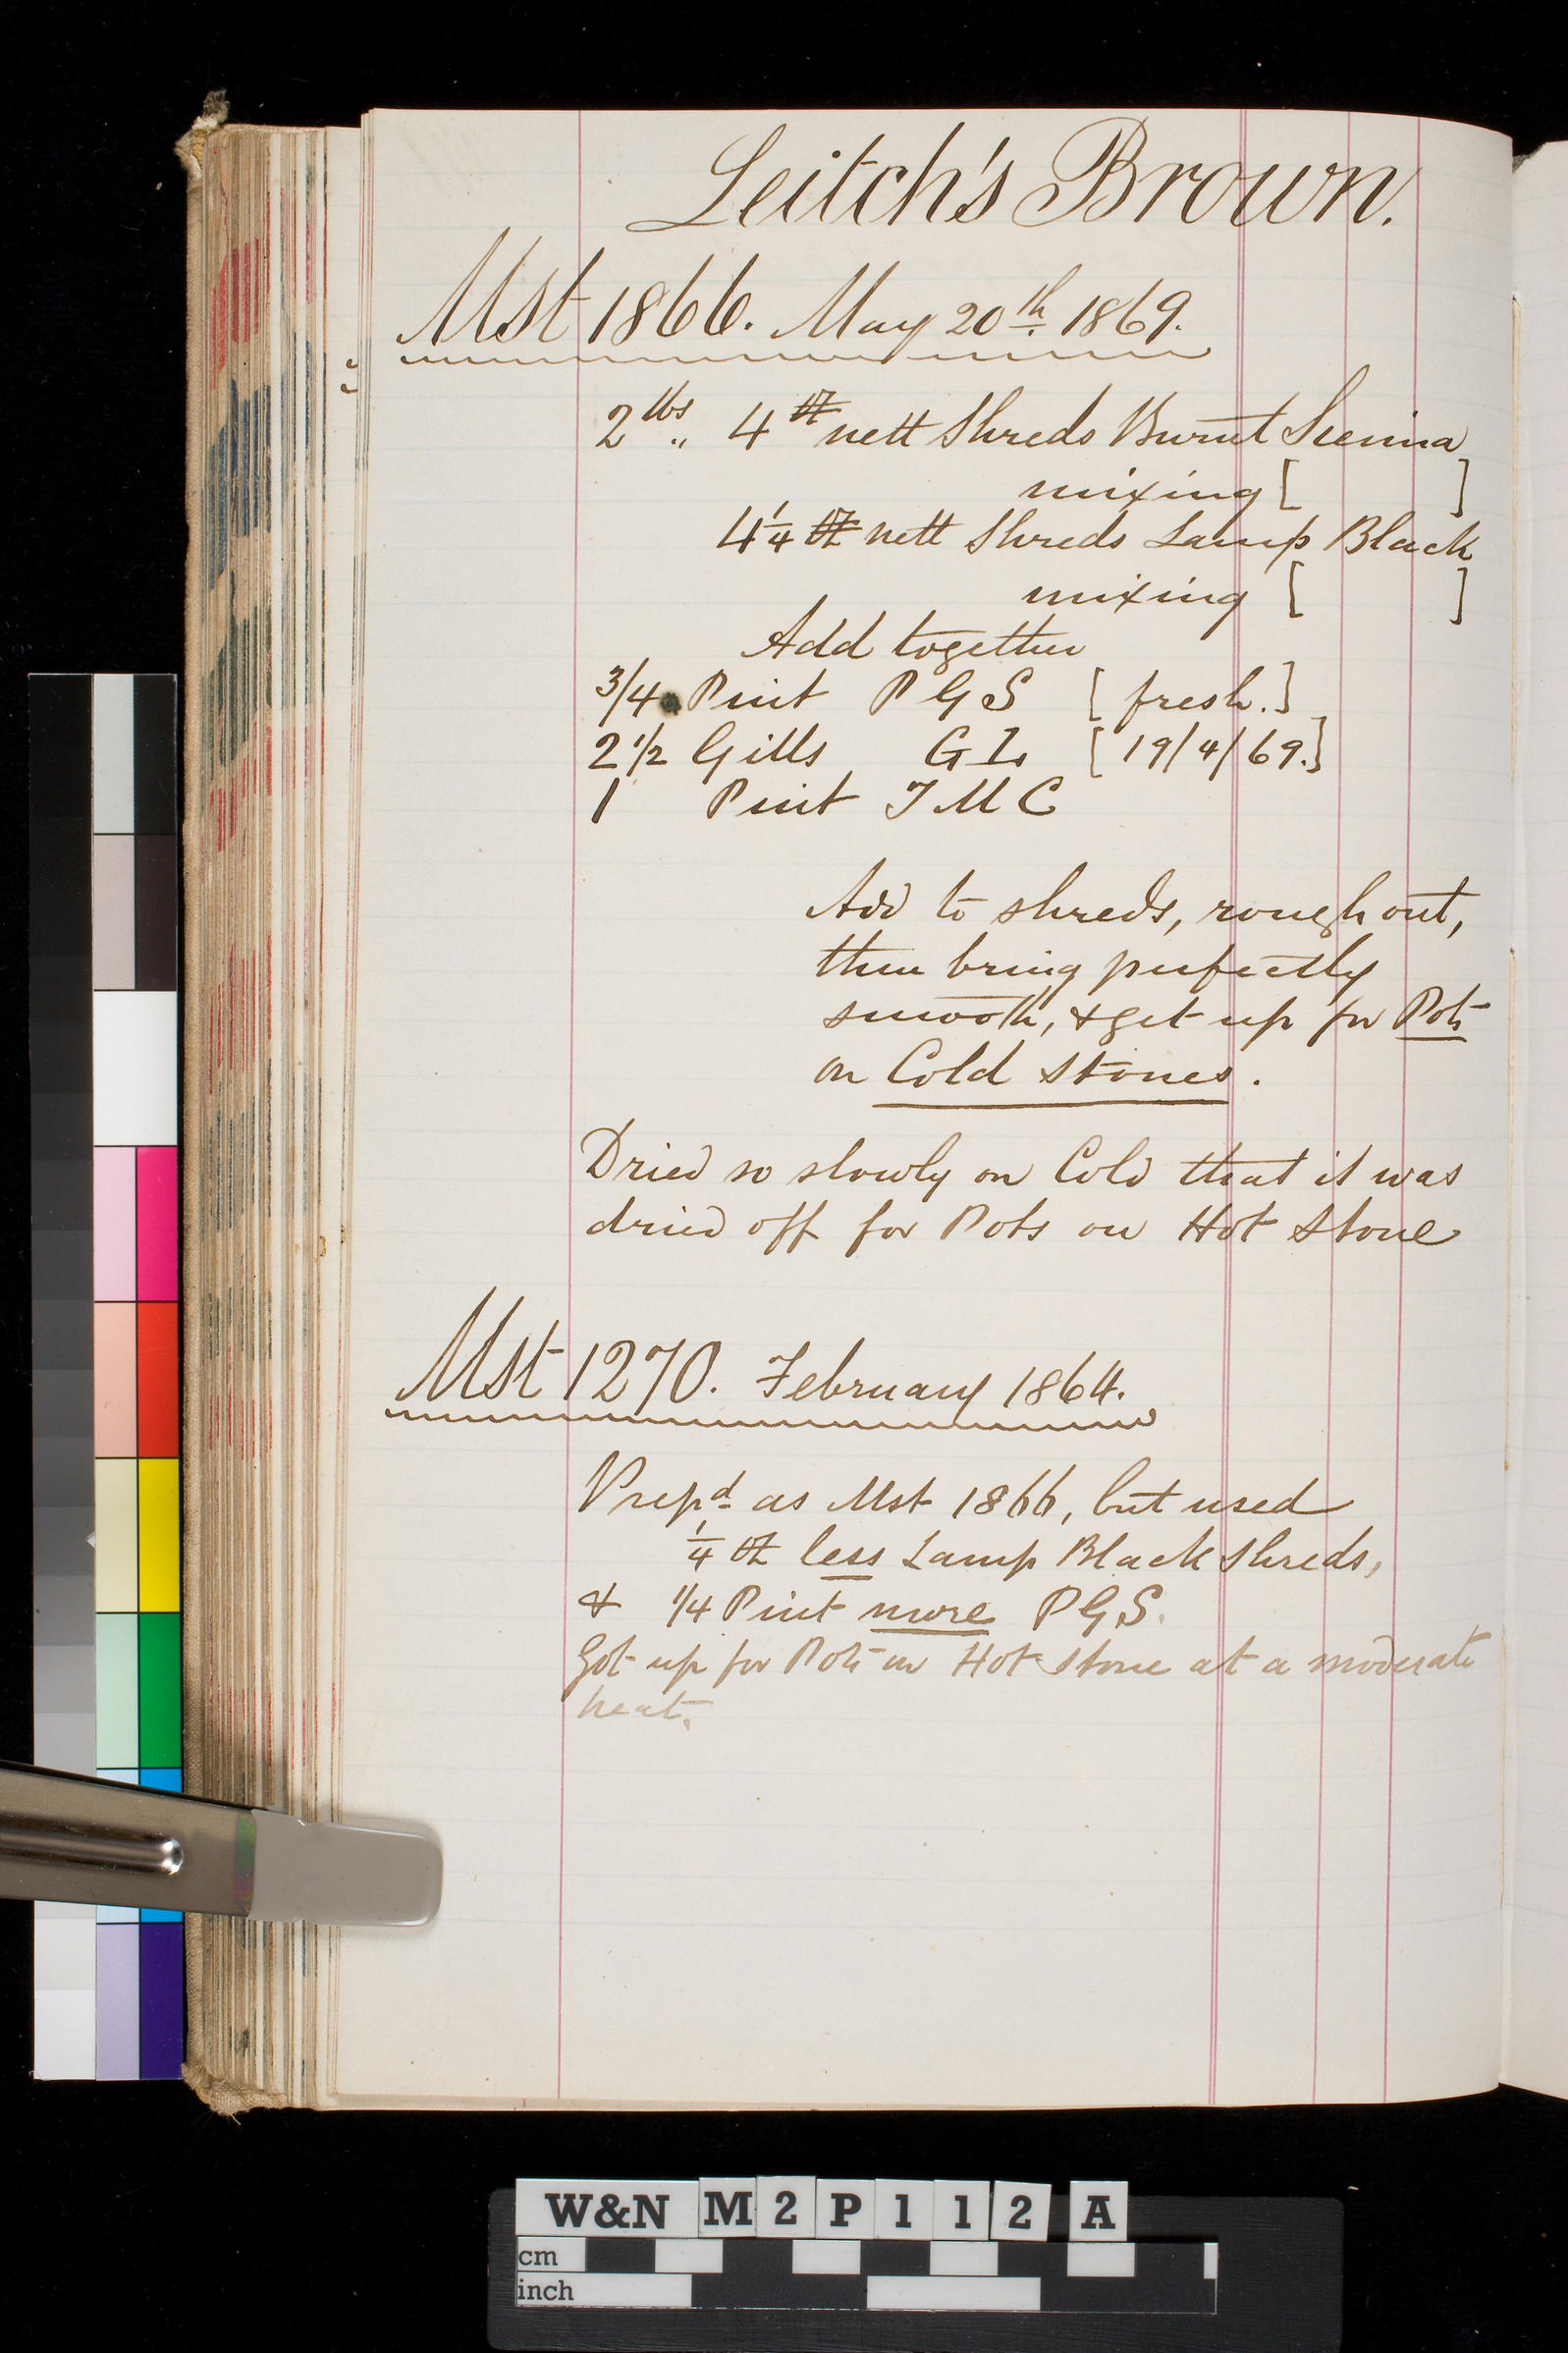 Leitch's Brown.
Mst 1866. May 20th. 1869.
2 lbs „ 4 oz nett Shreds Burnt Sienna
mixing [ ]
4 1/4 oz nett Shreds Lamp Black
mixing [ ]
Add together
3/4 Pint P G S [ fresh. ]
2 1/2 Gills G L [ 19/4/69. ]
1 Pint T M C
Add to shreds, rough out,
then bring perfectly
smooth, & get up for Pots
on Cold Stones.
Dried so slowly on Cold that it was
dried off for Pots on Hot Stone
Mst 1270. February 1864.
Prepd. as Mst 1866, but used
1/4 oz less Lamp Black Shreds,
& 1/4 Pint more P G S.
Got up for Pots on Hot Stone at a moderate
heat.
W&N M2P112 A
cm
inch